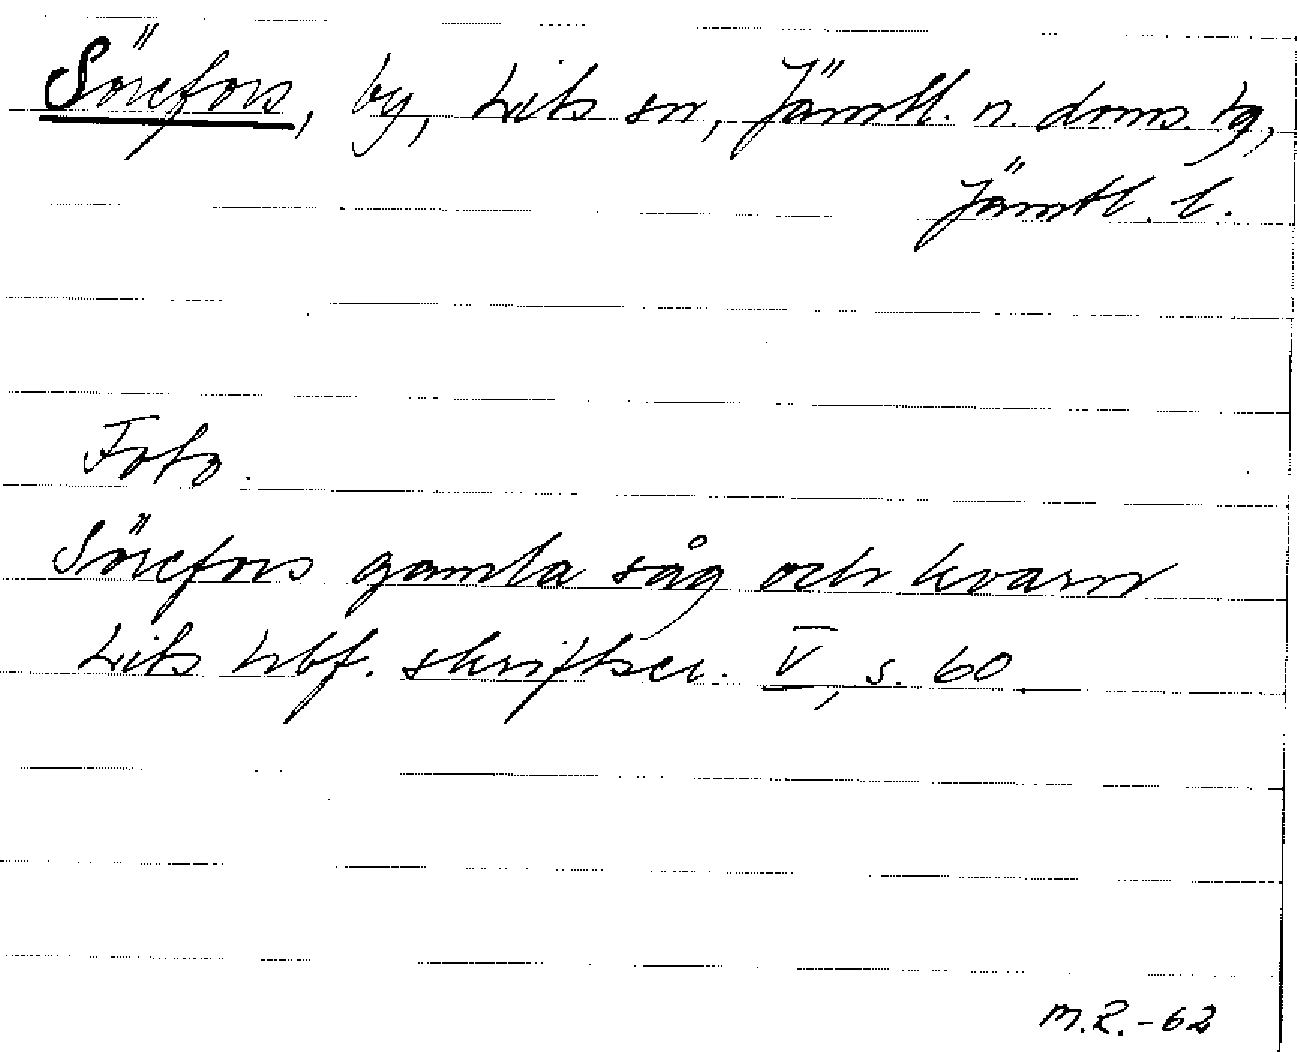 Sörefors, by, Lits sn, Jämtl. n. doms. tg,
Jämtl. l.
Foto.
Sörefors gamla såg och kvarn
Lits hbf. skriftser. V, s. 60
M.R.-62